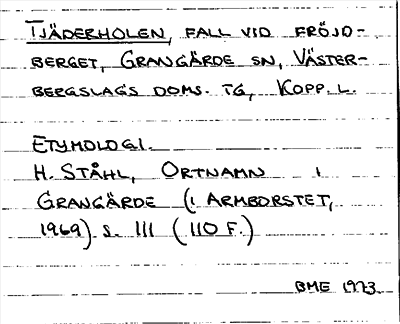 TJÄDERHOLEN, FALL VID FRÖJD-
BERGET, GRANGÄRDE SN, VÄSTER-
BERGSLAGS DOMS. TG, KOPP. L.
ETYMOLOGI.
H. STÅHL, ORTNAMN I
GRANGÄRDE (I ARMBORSTET,
1969) S. 111 (110 F.)
BME 1973